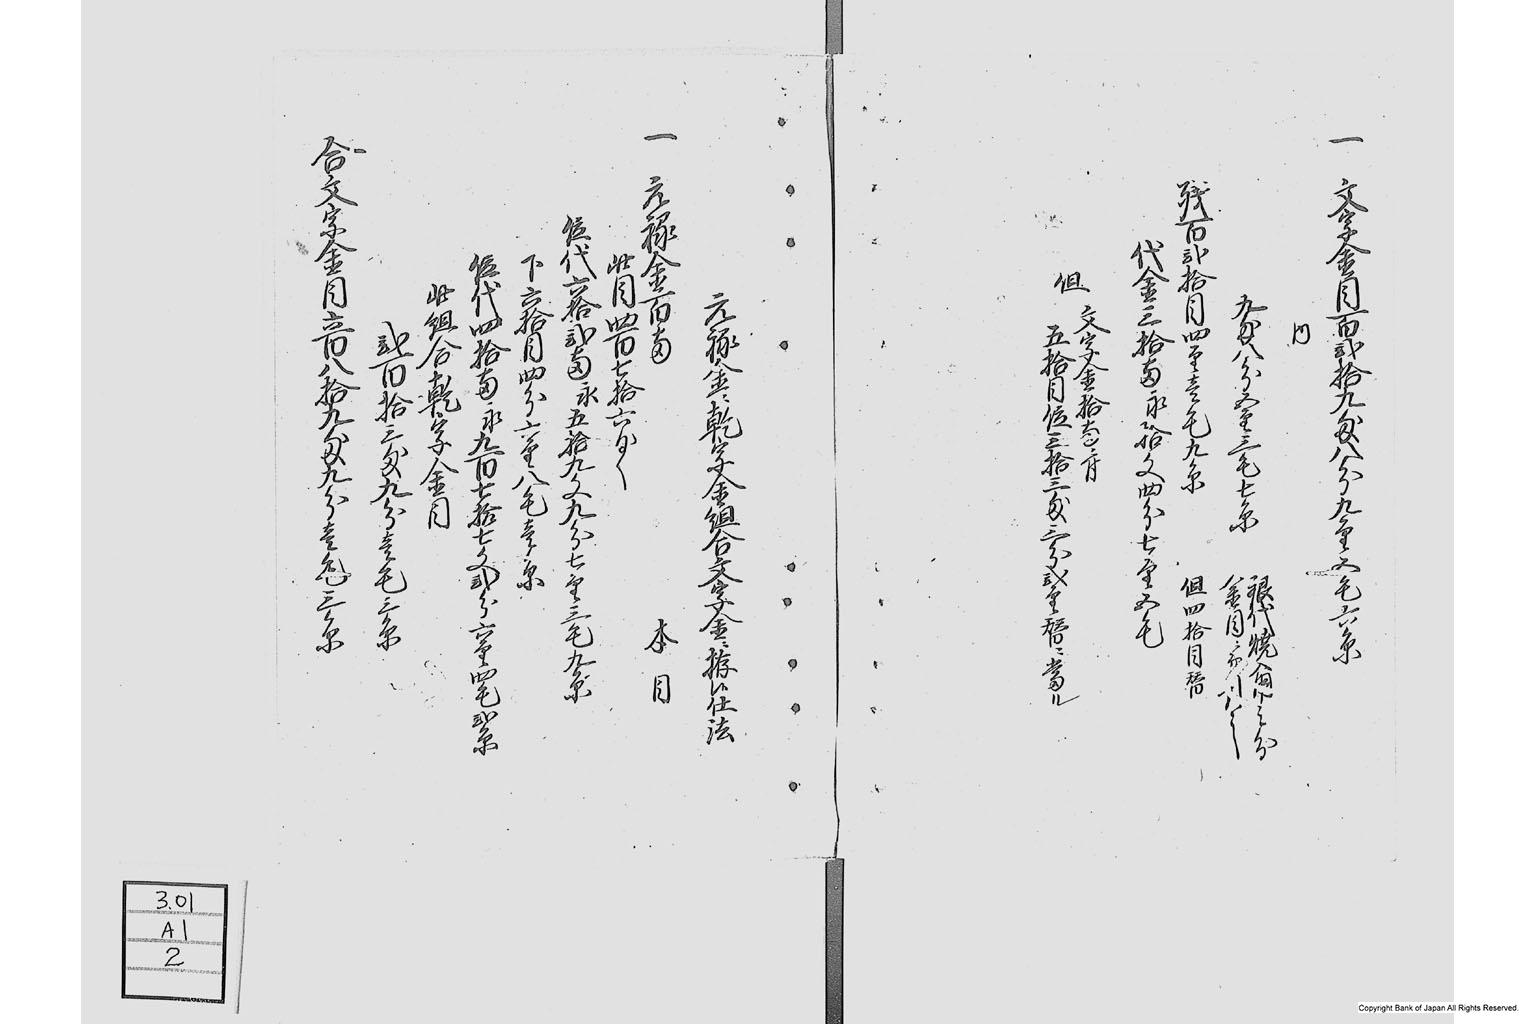 一 文字金目百弐拾九匁八分九厘五毛六糸
内
九匁八分五厘三毛七糸
銀代焼
金目
残百弐拾目四厘壱毛九糸
但四拾目替
代金三拾両永拾文四分七厘五毛
但
文字金拾
五拾目位三拾三匁三分弐厘替ニ当ル
元禄金ニ乾字金組合文字金ニ拵候仕法
一 元禄金百両
本目
此目四百七拾六匁
位代六拾弐両永五拾九文九分七厘三毛九糸
下六拾目四分六厘八毛壱糸
位代四拾両永九百七拾七文弐分六厘四毛弐糸
此組合乾字金目
弐百拾三匁九分壱毛三糸
合文字金目六百八拾九匁九分壱毛三糸
3.01
A1
2
Copyright Bank of Japan All Rights Reserved.